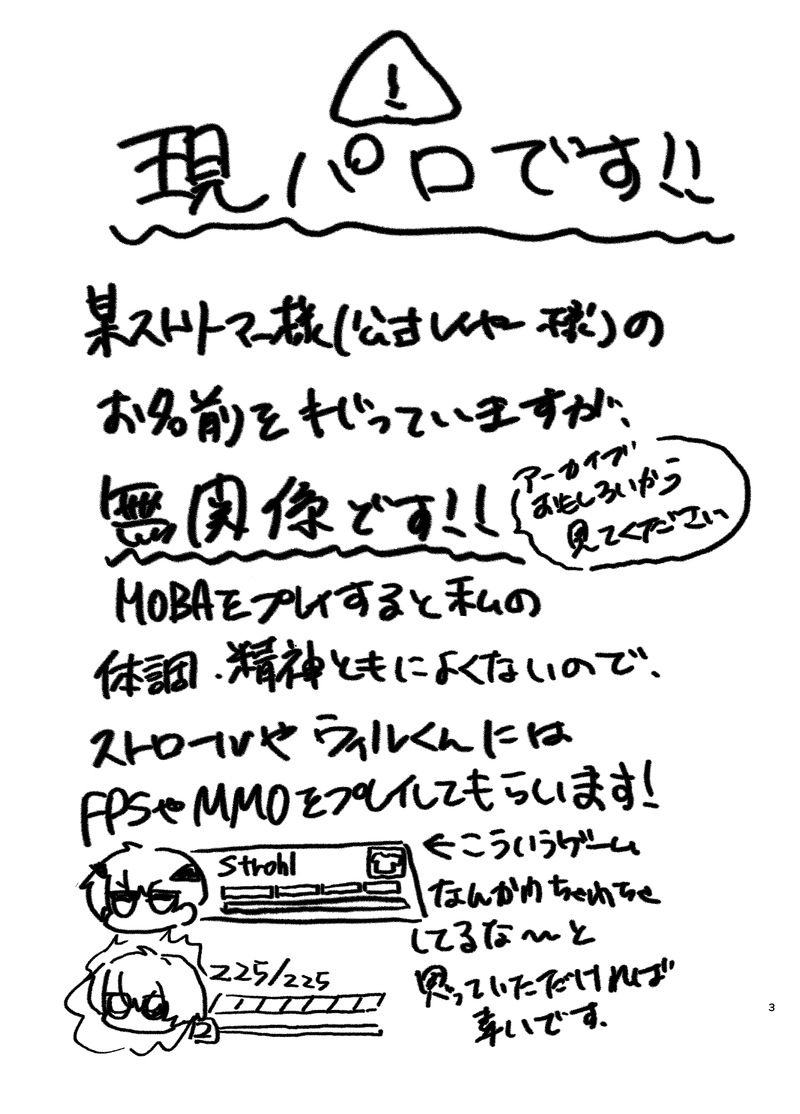 !
現パロです!!
某ストリーマー様(公式レイヤー様)の
お名前をもじっていますが、
無関係です!!
アーカイブ
おもしろいから
見てください
MOBAをプレイすると私の
体調・精神ともによくないので、
ストロールやウィルくんには
FPSやMMOをプレイしてもらいます!
Strohl
225/225
12
←こういうゲーム
なんかわちゃわちゃ
してるな〜と
思っていただければ
幸いです。
3